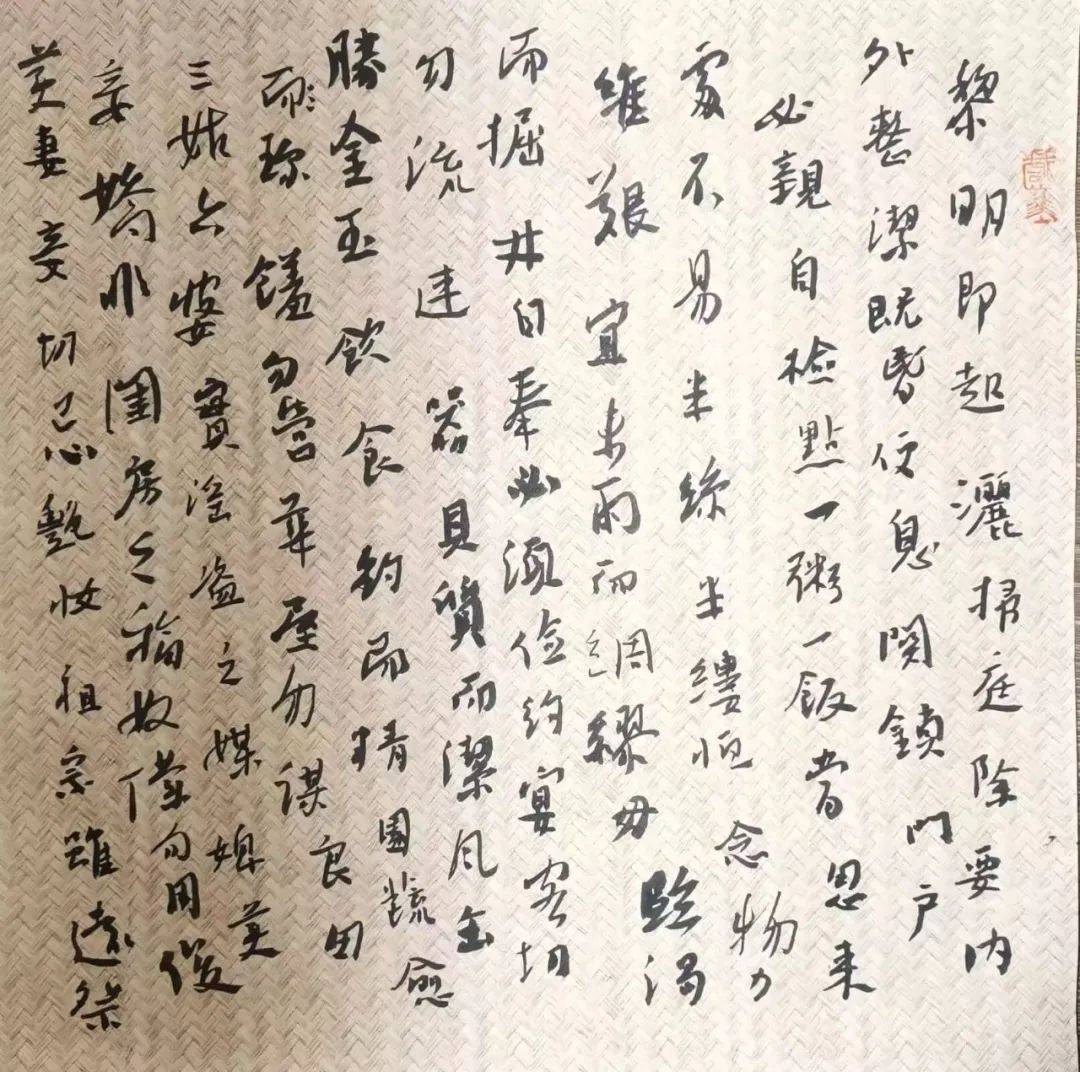 黎明即起灑掃庭除要内
外整潔既昬便息関鎖門户
必親自檢點一粥一飯當思来
處不易半絲半縷恒念物力
維艱宜未雨而綢繆毋臨渴
而掘井自奉必須儉約宴客切
勿流連器具質而潔瓦缶
勝金玉飲食約而精園蔬愈
而珍饈勿營華屋勿謀良田
三姑六婆實淫盗之媒婢美
妾嬌非閨房之福奴僕勿用俊
美妻妾切忌艶妆祖宗雖遠祭